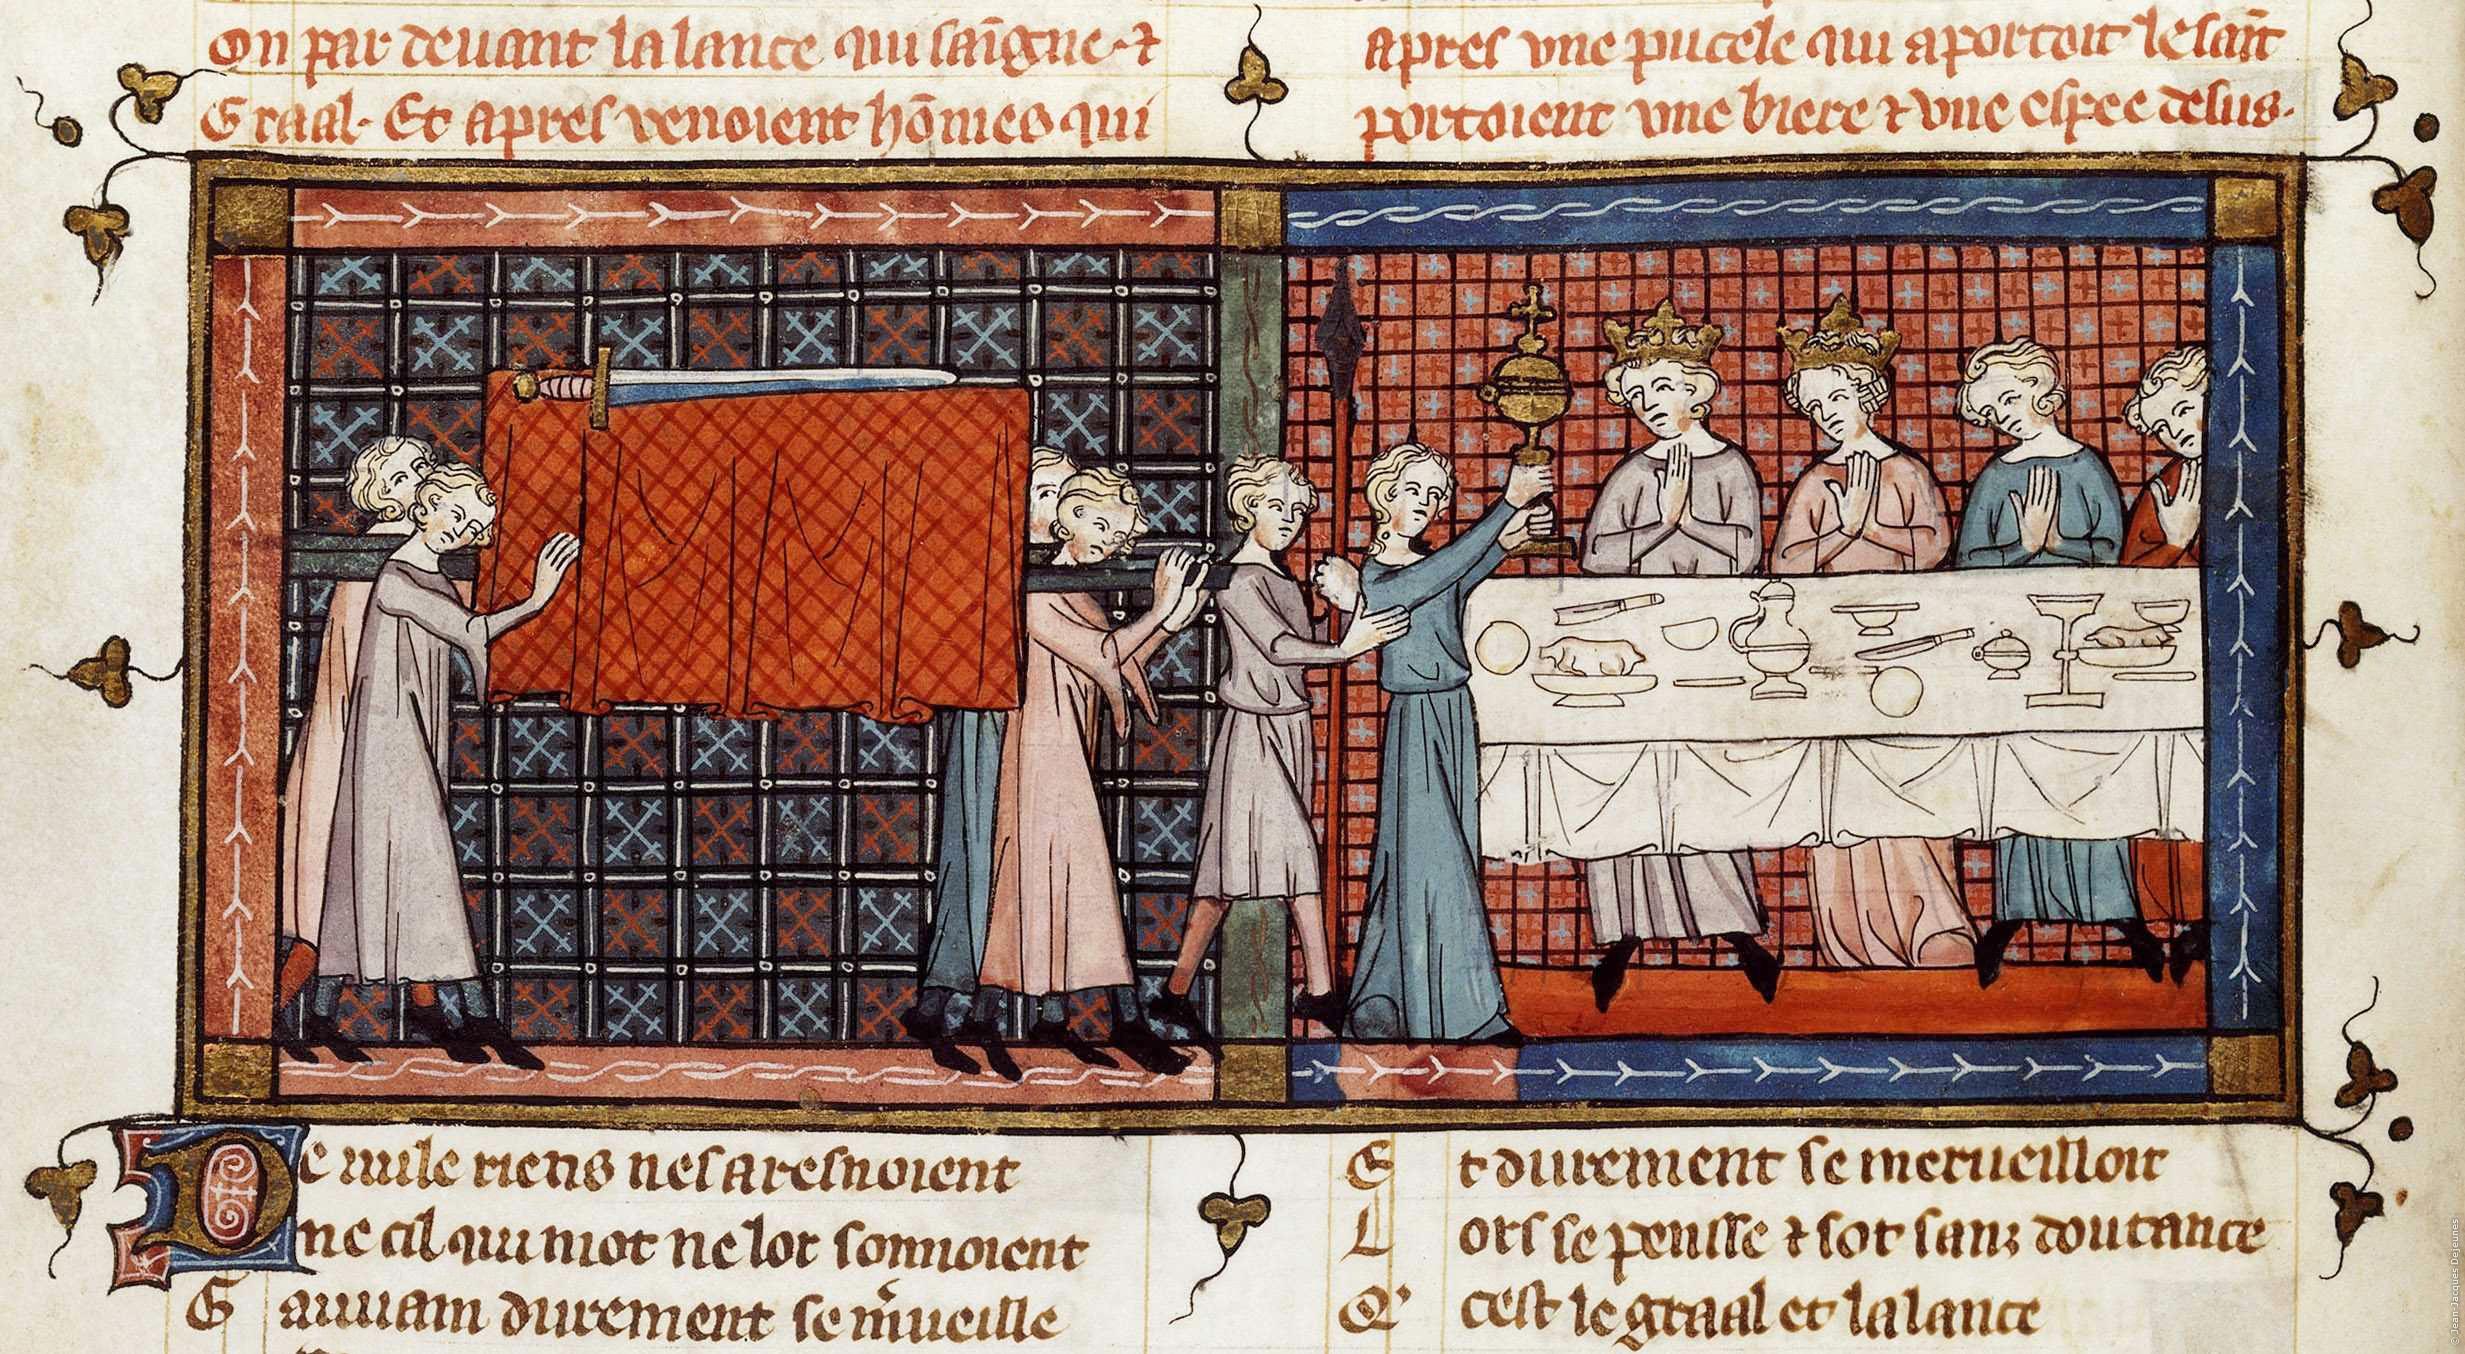 On par deuant la lance qui saīgne · ⁊ apres vne pucele qui aportoit le saīt
Graal · Et apres venoient hōmes qui portoient vne biere ⁊ vne espee desus ·
De nule riens nes aresnoient
ne cil qui mot ne lor sonnoient
Gauuain durement se m̾ueille
Et durement se merueilloit
Lors se pensse ⁊ sot sanz doutance
Q' cest le graal et la lance
© Jean-Jacques Dejeunes